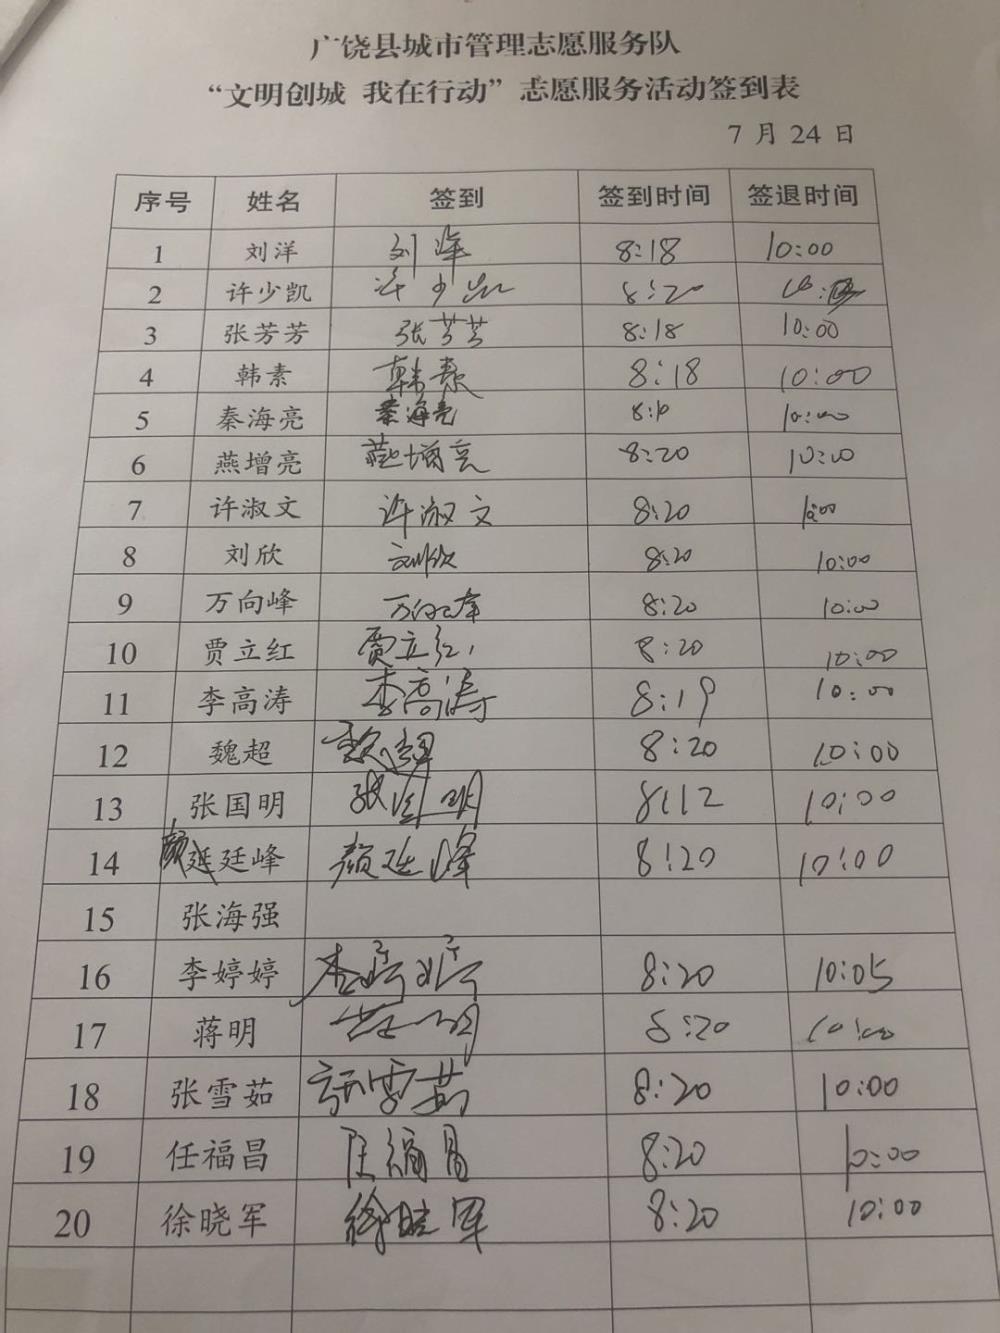 广饶县城市管理志愿服务队
“文明创城 我在行动”志愿服务活动签到表
7 月 24 日
序号 姓名 签到 签到时间 签退时间
1 刘洋 刘洋 8:18 10:00
2 许少凯 许少凯 8:20
3 张芳芳 张芳芳 8:18 10:00
4 韩素 韩素 8:18 10:00
5 秦海亮 秦海亮 10:00
6 燕增亮 燕增亮 8:20 10:00
7 许淑文 许淑文 8:20 10:00
8 刘欣 刘欣 8:20 10:00
9 万向峰 万向峰 8:20 10:00
10 贾立红 贾立红 8:20 10:00
11 李高涛 李高涛 8:19 10:00
12 魏超 魏超 8:20 10:00
13 张国明 张国明 8:12 10:00
14 颜廷峰 颜廷峰 8:20 10:00
15 张海强
16 李婷婷 李婷婷 8:20 10:05
17 蒋明 蒋明 8:20 10:00
18 张雪茹 张雪茹 8:20 10:00
19 任福昌 任福昌 8:20 10:00
20 徐晓军 徐晓军 8:20 10:00